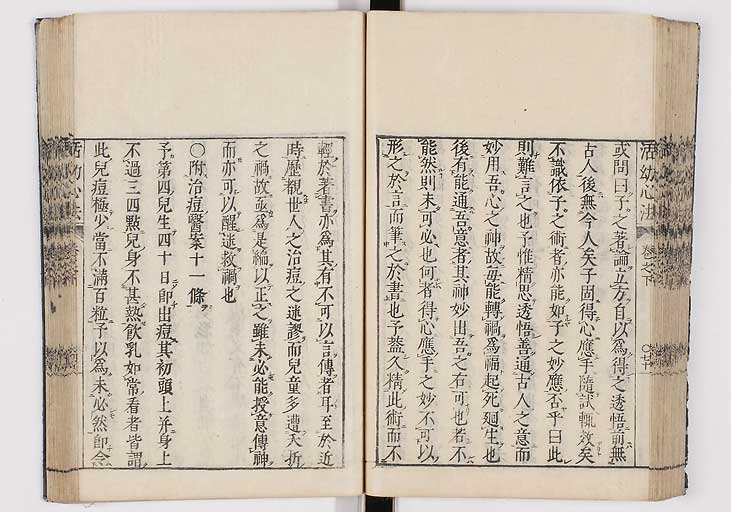 活幼心法 卷之下 〇七十
或問曰子之著論立方自以爲得之透悟前無
古人後無今人矣子固得心應手隨試輒效矣
不識依子之術者亦能如子之妙應否乎曰此
則難言之也予惟精思透悟善通古人之意而
妙用吾心之神故每能轉禍爲福起死廻生也
後有能通吾意者其神妙出吾之右可也若不
能然則未可必也何者得心應手之妙不可以
形之於言而筆之於書也予葢久精此術而不
輕於著書亦爲其有不可以言傳者耳至於近
時歷覩世人之治痘之迷謬而兒童多遭夭折
之禍故亟爲是編以正之雖未必能授意傳神
而亦可以醒迷救禍也
〇附治痘醫案十一條
予第四兒生四十日卽出痘其初頭上并身上
不過三四點兒身不甚熱飮乳如常看者皆謂
此兒痘極少當不滿百粒予以爲未必然卽念
活幼心法